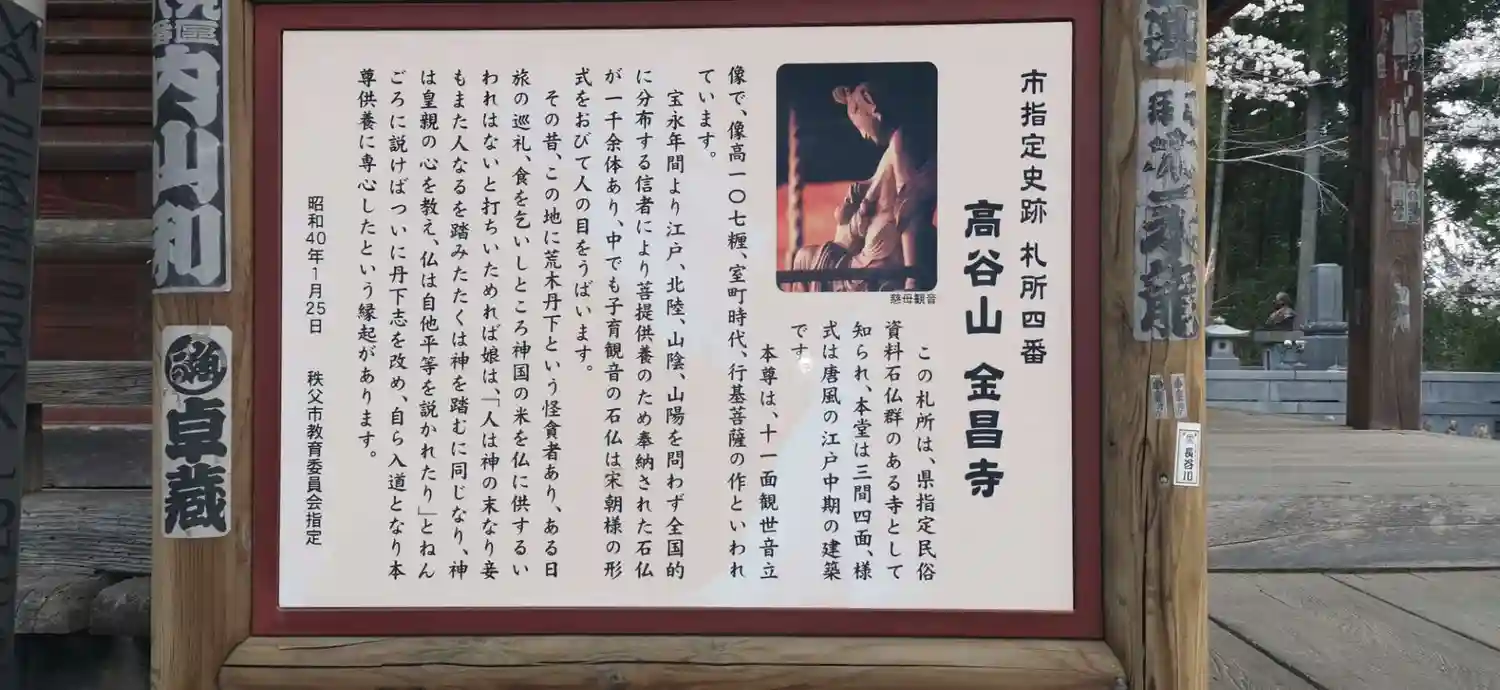 市指定史跡 札所四番
高谷山 金昌寺
この札所は、県指定民俗
資料石仏群のある寺として
知られ、本堂は三間四面、様
式は唐風の江戸中期の建築
です。
本尊は、十一面観世音立
像で、像高一〇七糎、室町時代、行基菩薩の作といわれ
ています。
宝永年間より江戸、北陸、山陰、山陽を問わず全国的
に分布する信者により菩提供養のため奉納された石仏
が一千余体あり、中でも子育観音の石仏は宋朝様の形
式をおびて人の目をうばいます。
その昔、この地に荒木丹下という怪貪者あり、ある日
旅の巡礼、食を乞いしところ神国の米を仏に供するい
われはないと打ちいためれば娘は、「人は神の末なり妾
もまた人なるを踏みたたくは神を踏むに同じなり、神
は皇親の心を教え、仏は自他平等を説かれたり」とねん
ごろに説けばついに丹下志を改め、自ら入道となり本
尊供養に専心したという縁起があります。
昭和40年1月25日 秩父市教育委員会指定
慈母観音
内山和
卓蔵
長谷川